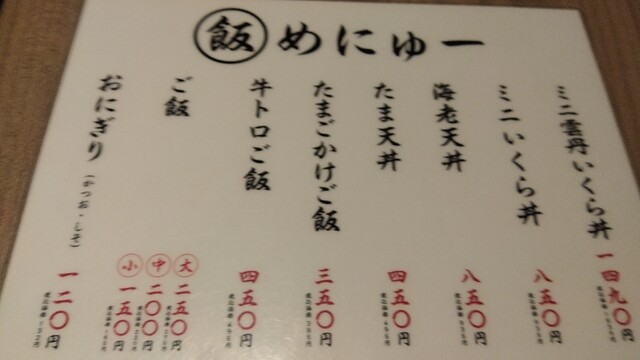 飯めにゅー
ミニ雲丹いくら丼 一四九〇円
ミニいくら丼 八五〇円
海老天丼 八五〇円
たま天丼 四五〇円
たまごかけご飯 三五〇円
牛トロご飯 四五〇円
ご飯
大 二五〇円
中 二〇〇円
小 一五〇円
おにぎり(かつお・しそ) 一二〇円